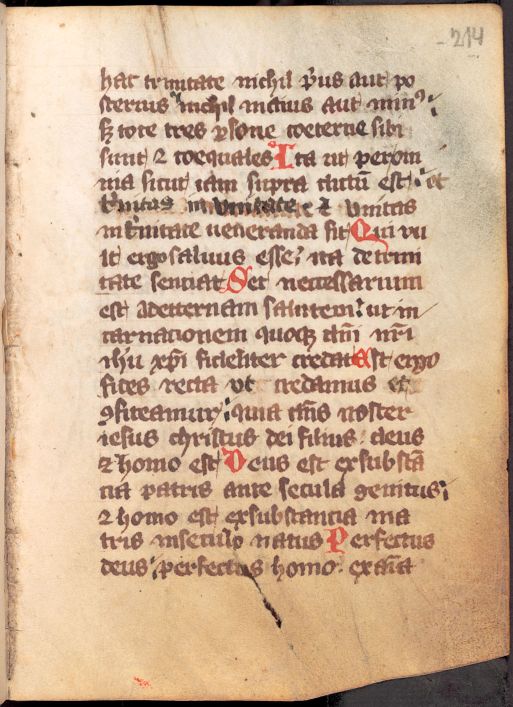 214
hac trinitate nichil p̄us aut po
sterius nichil maius aut min⁹
sꝫ tote tres ꝑsone coeterne sibi
sunt ⁊ coequales Ita ut per om
nia sicut iam supra dictū est et
t̄nitas in unitate ⁊ vnitas
in t̄nitate ueneranda sit Qui vu
lt ergo saluus esse ita de trini
tate sentiat Set necessarium
est ad eternam salutem ut in
carnacionem quoqꝫ dn̄i nr̄i
ihū xp̄i fideliter credat Est ergo
fides recta vt credamus et
ꝯfiteamur quia dn̄s noster
iesus christus dei filius deus
⁊ homo est Deus est ex substā
cia patris ante secula genitus
⁊ homo est ex substancia ma
tris in seculo natus Perfectus
deus perfectus homo ex aīa